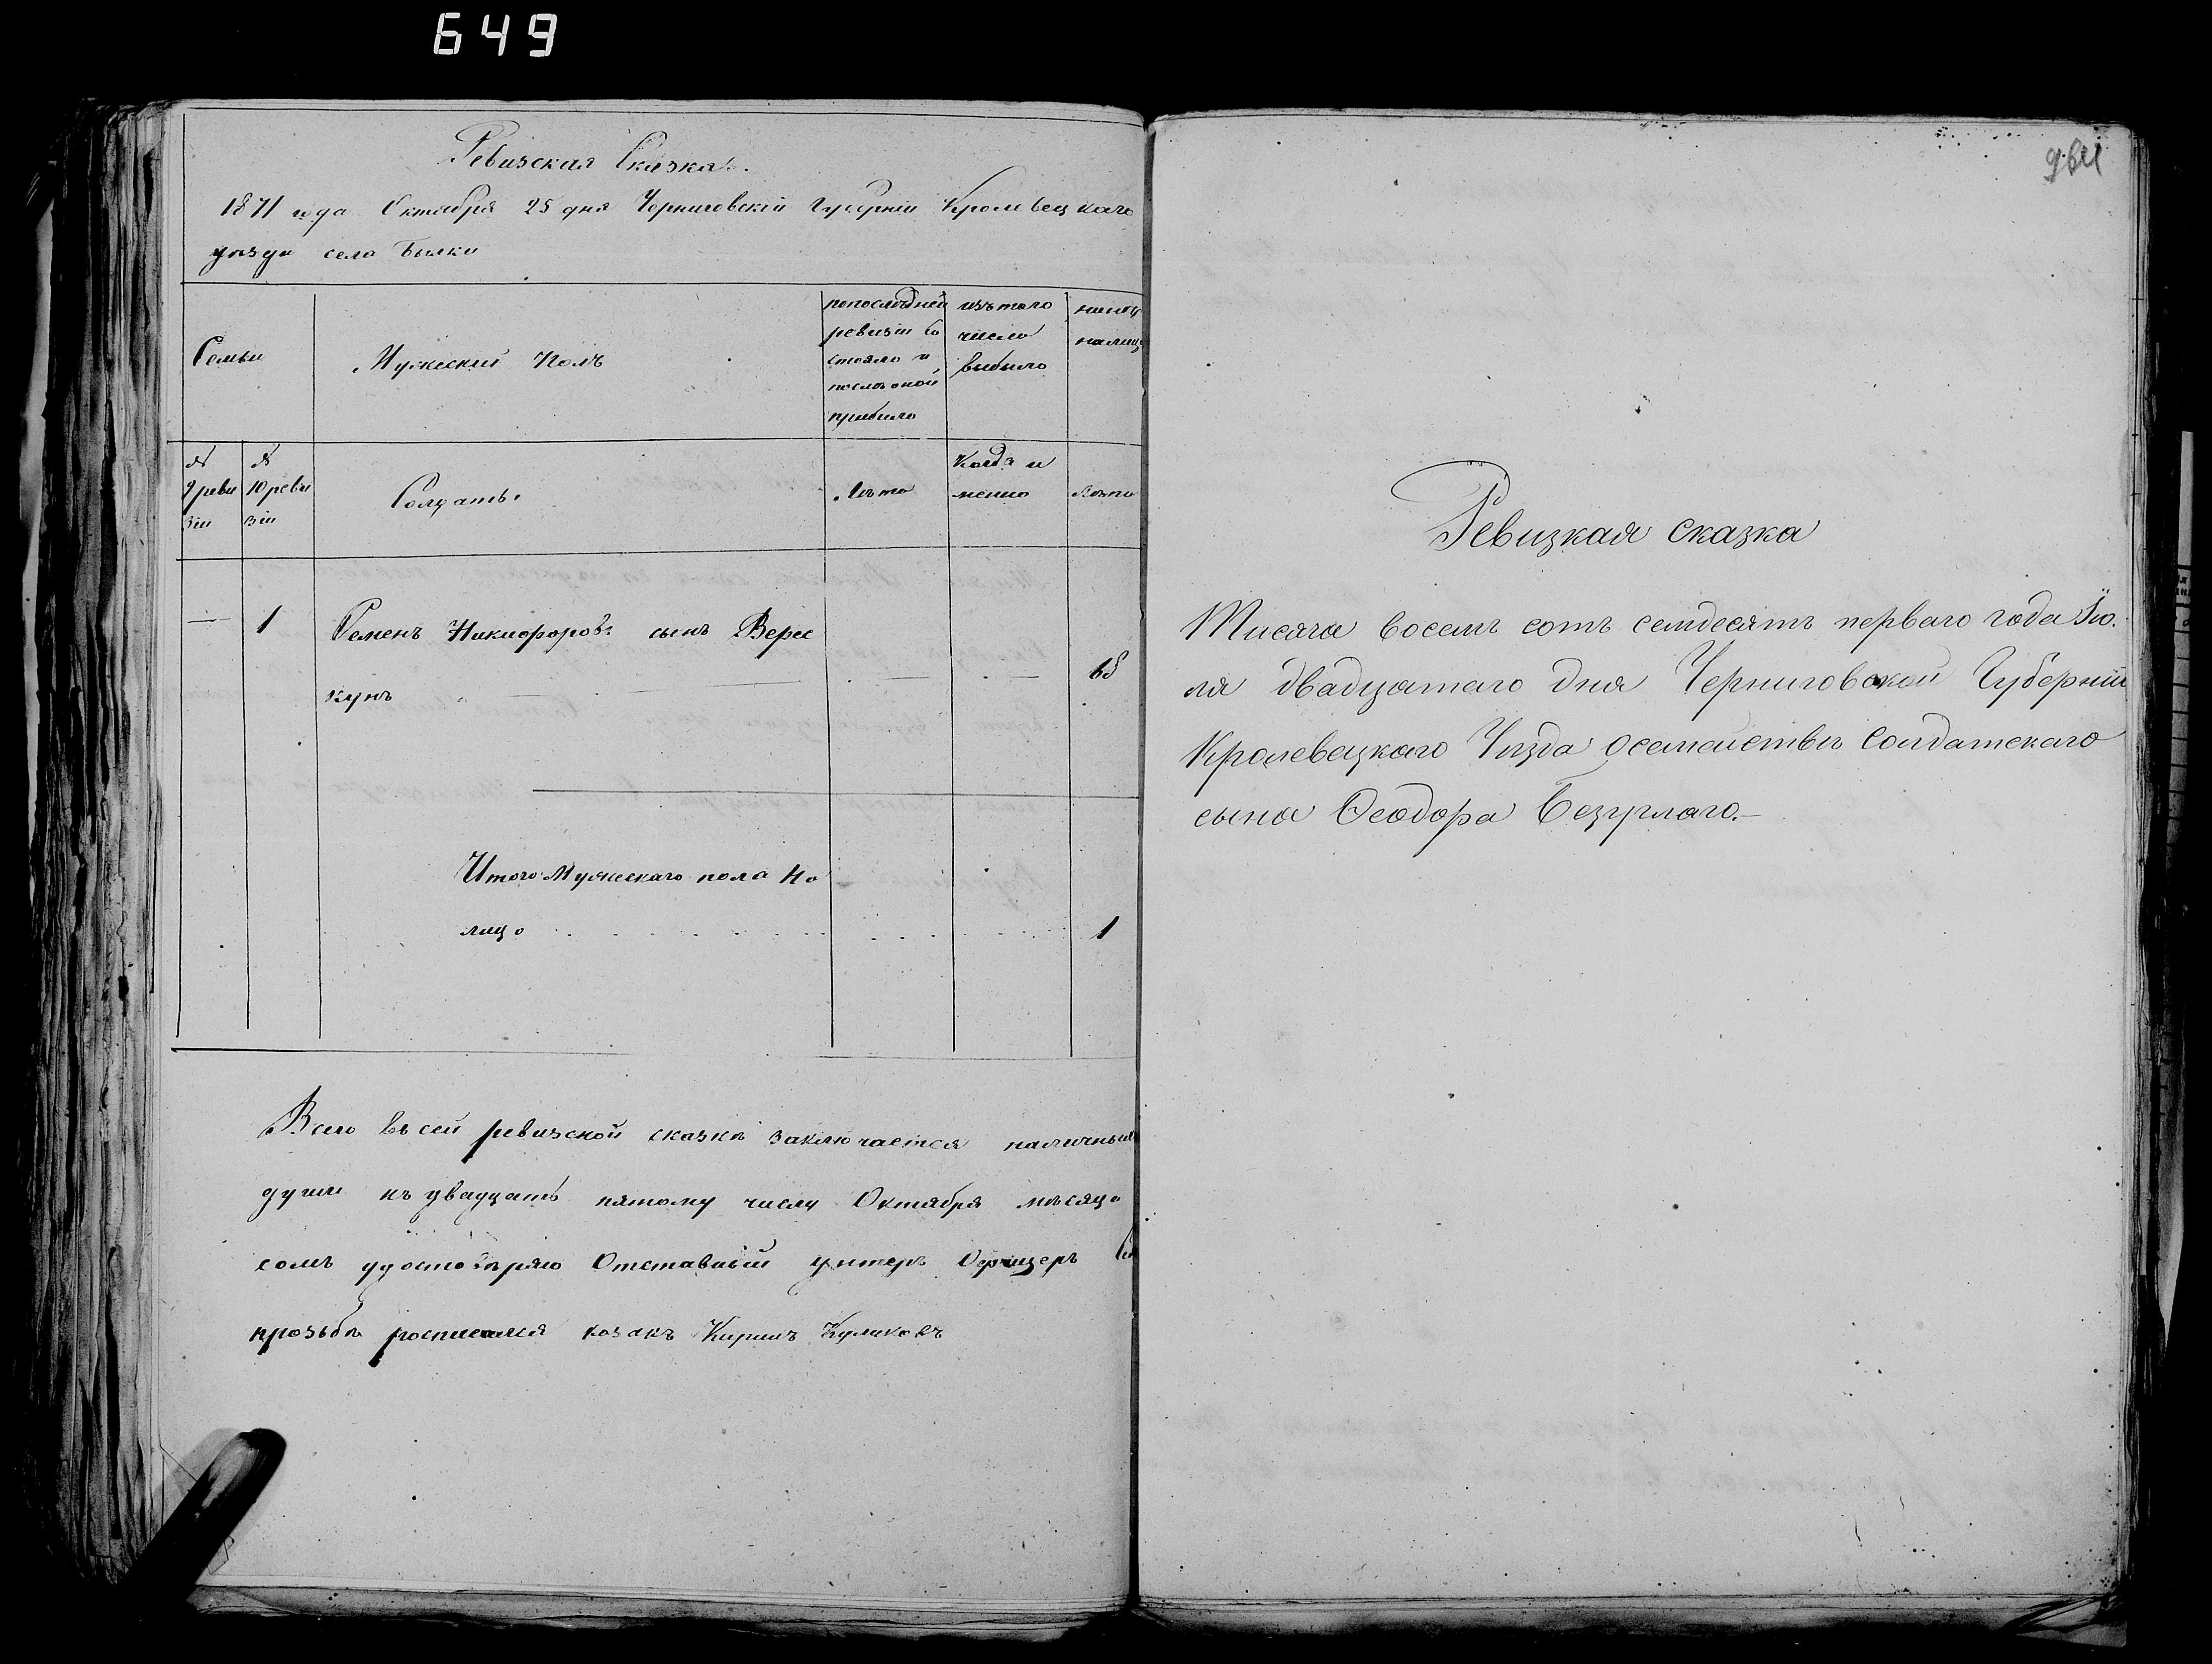 649
Ревизская Сказка.
1871 года Октября 25 дня Черниговской Губерніи Кролевецкаго
уѣзда села Билки
Семьи
Мужеский Полъ
попослѣдней
ревизіи со
стояло и
послѣ оной
прибыло
изътого
число
выбыло
ныне
налицо
№
9 реви
зіи
№
10 реви
зіи
Солдаты
Лѣта
Когда и
менно
Лѣта
— 1 Семенъ Никифоровъ сынъ Верес
кунъ
Итого Мужескаго пола на
лицо 1
Всего въ сей ревизской сказки заключается наличныхъ
души къ двадцать пятому числу Октября мѣсяца
сомъ удостовѣряю Отставный унтеръ Офицеръ
прозьбѣ росписался козакъ Кирилъ Куликовъ
964
Ревизкая сказка
Тисяча восемь сотъ семдесятъ перваго года Ію.
ля двадцатаго дня Черниговской Губерніи
Кролевецкаго Уѣзда осемействѣ солдатскаго
сына Ѳеодора Безуглаго.—